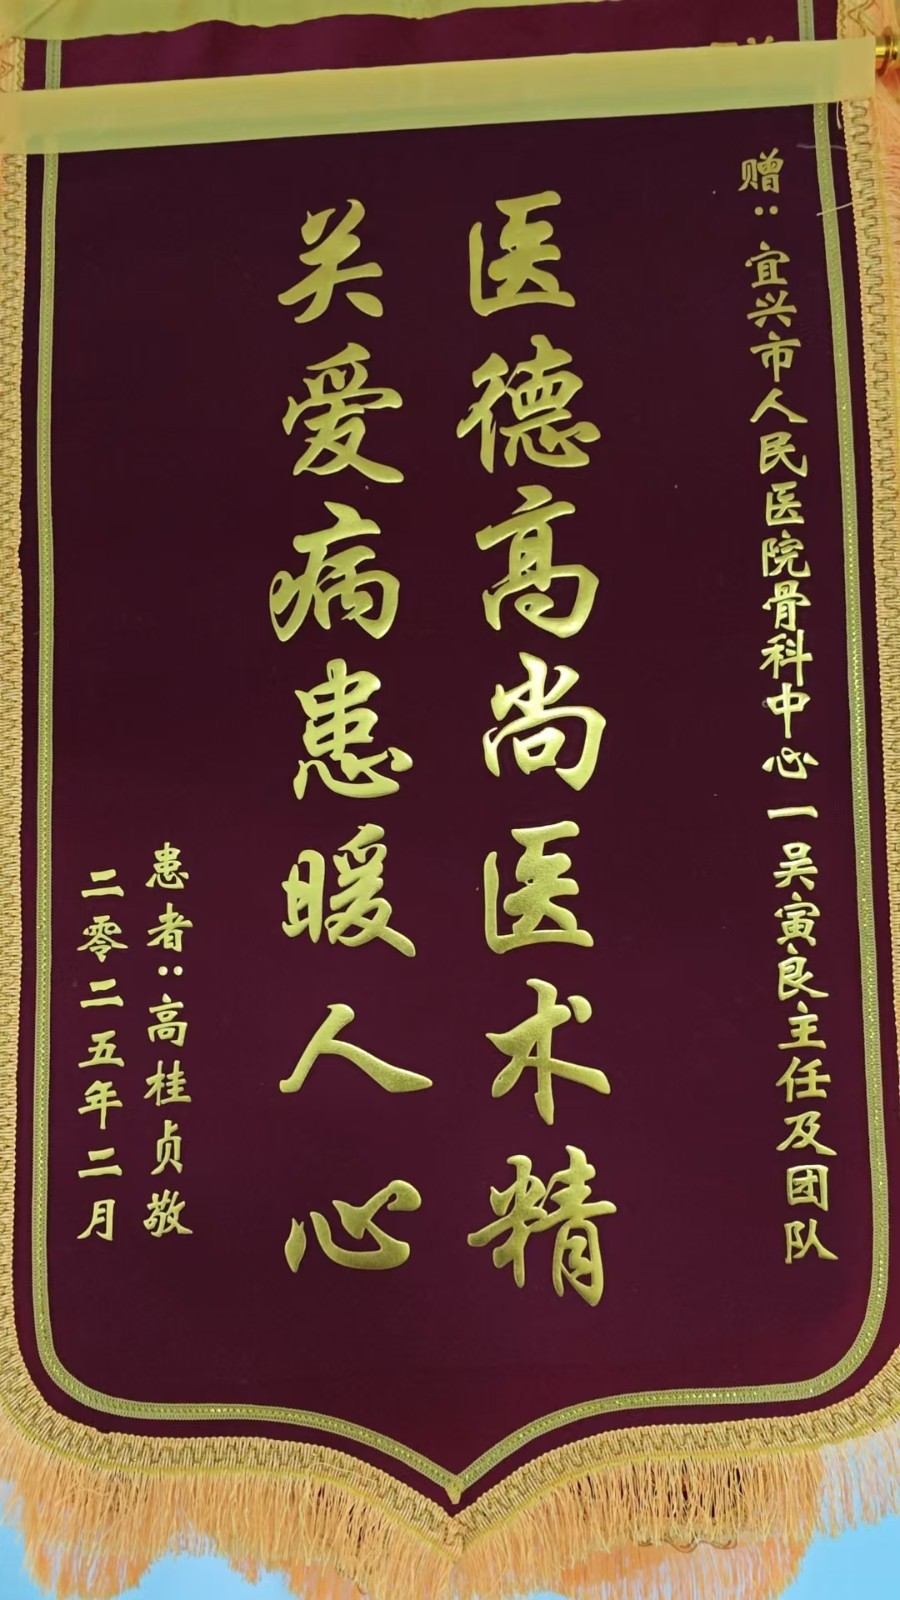 赠：宜兴市人民医院骨科中心一吴寅良主任及团队
医德高尚医术精
关爱病患暖人心
患者：高桂贞敬
二零二五年二月